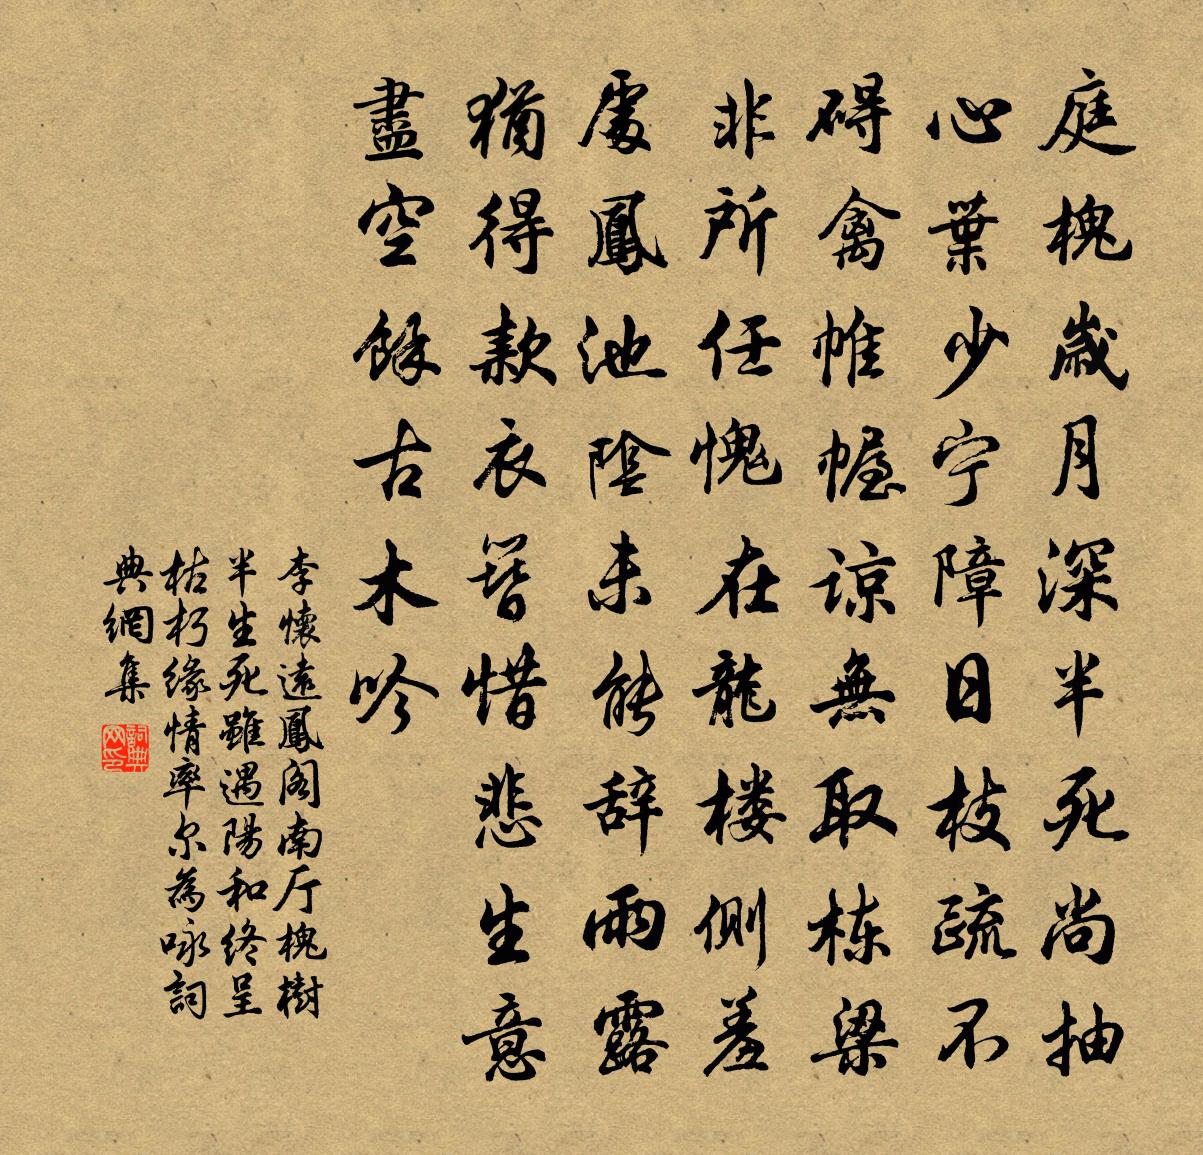 庭槐歲月深半死尚抽
心葉少宁障日枝疏不
碍禽帷幄谅無取栋梁
非所任愧在龍楼側羞
處鳳池陰未能辞雨露
猶得款衣簪惜悲生意
盡空餘古木吟
李懷遠鳳阁南厅槐樹
半生死雖遇陽和终呈
枯朽緣情率尔為咏詞
典網集
詞典網印